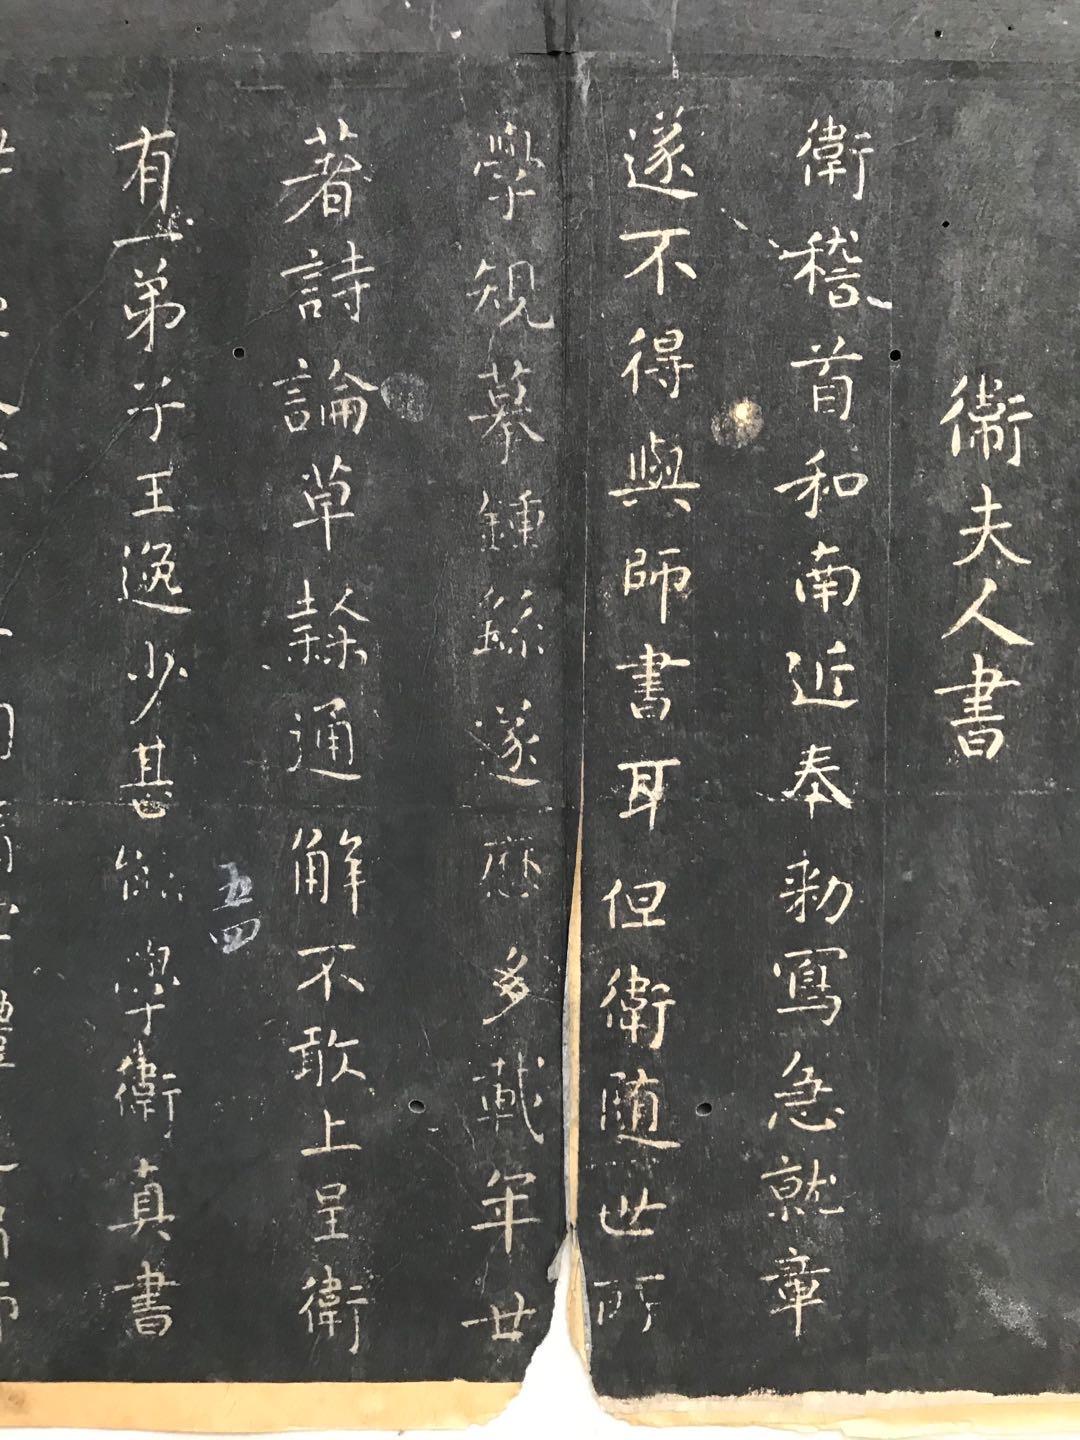 衛夫人書
衛稽首和南近奉勑寫急就章
遂不得與師書耳但衛随世所
學規摹鍾繇遂歷多載年廿
著詩論草隸通解不敢上呈衛
有一弟子王逸少甚能學衛真書
五四